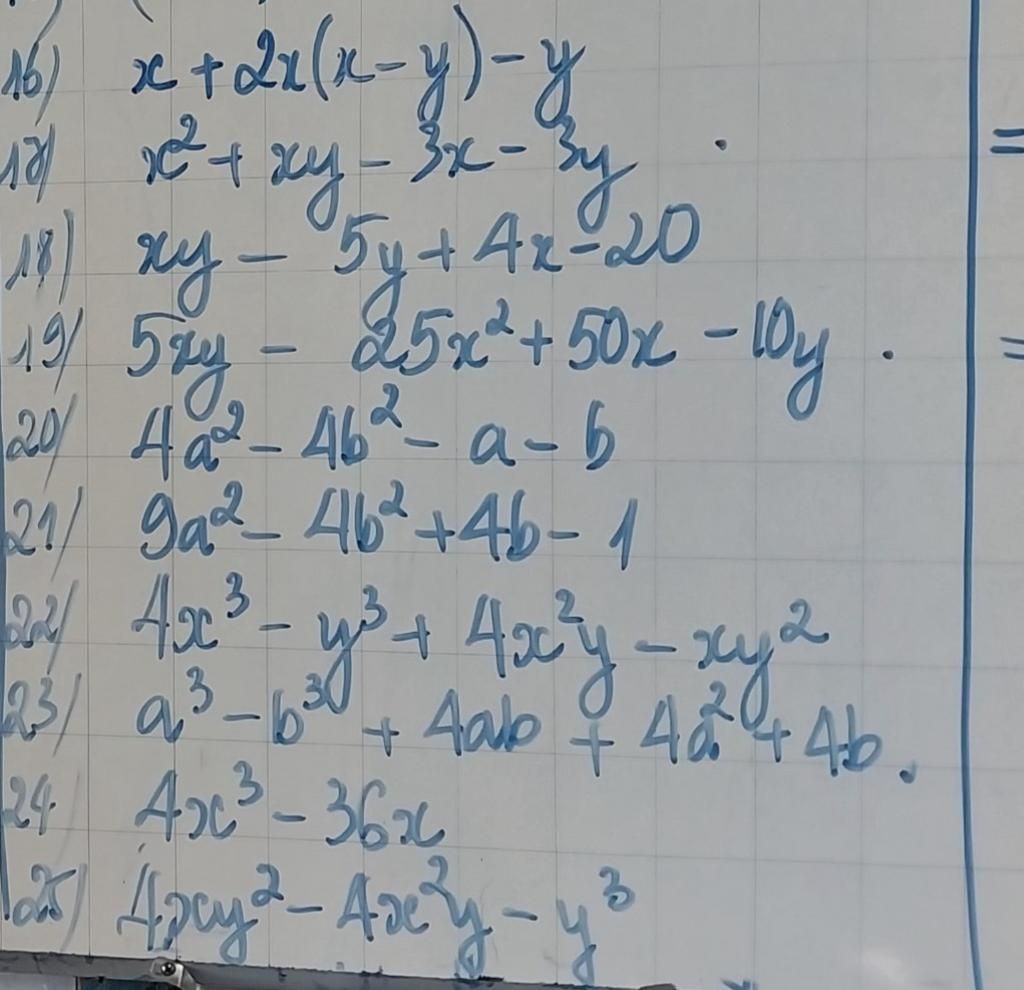 16) x + 2x(x - y) - y
17) x² + xy - 3x - 3y .
=
18) xy - 5y + 4x - 20
19) 5xy - 25x² + 50x - 10y .
=
20) 4a² - 4b² - a - b
21) 9a² - 4b² + 4b - 1
22) 4x³ - y³ + 4x²y - xy²
23) a³ - b³ + 4ab + 4a² + 4b .
24) 4x³ - 36x
25) 4xy² - 4x²y - y³